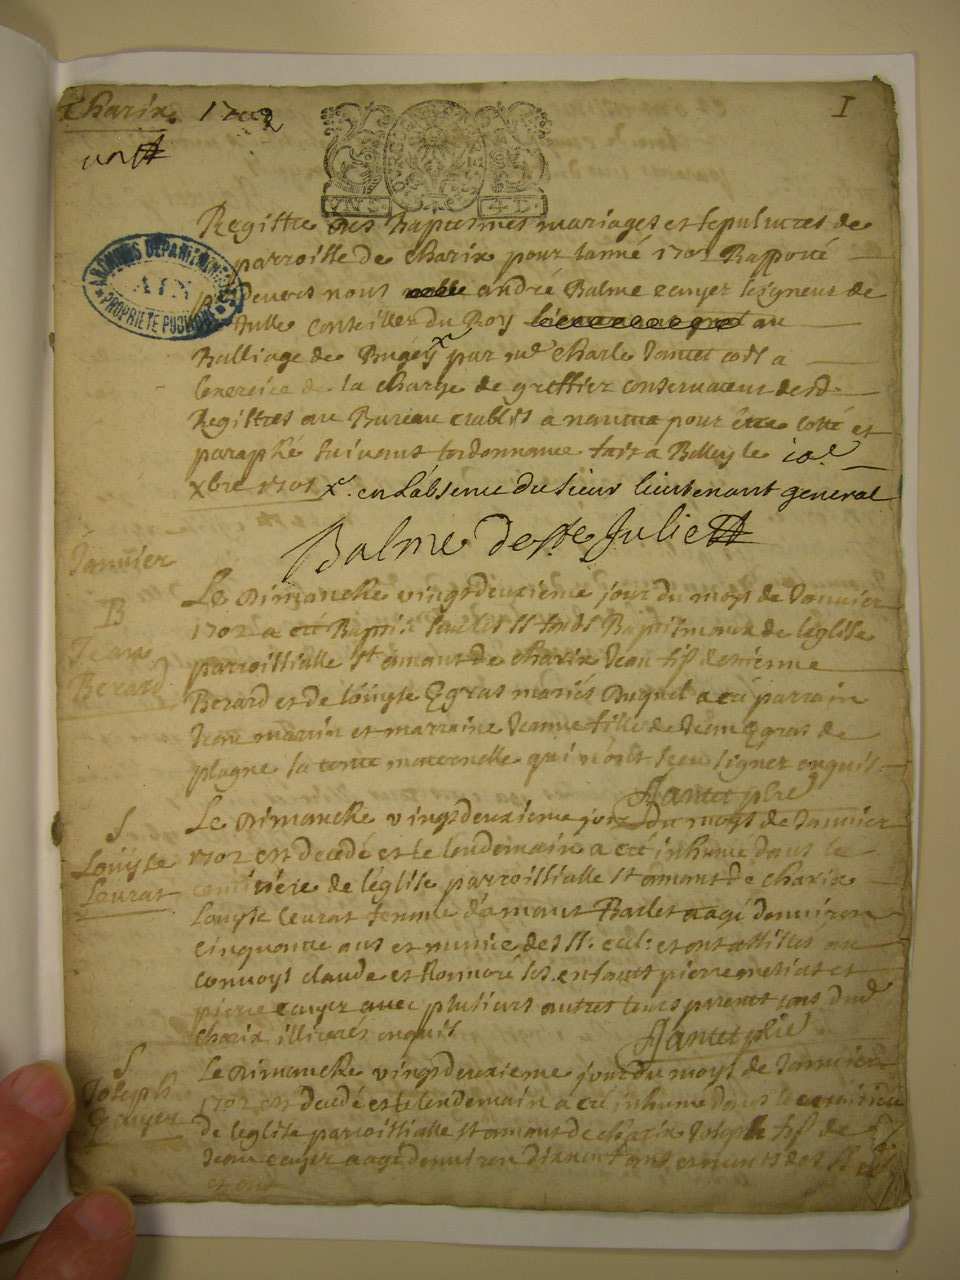 Charix 1702
1
VN S. 4 D.
ARCHIVES DEPARTEMENTALES
AIN
PROPRIETE PUBLIQUE
Registre des baptesmes mariages et sepultures de
parroisse de Charix pour lanné 1702 Rapporté
pardevers nous andré Balme escuyer seigneur de
Julie conseiller du Roy au
Balliage de Bugey x par me Charle Jantet commis a
lexercice de la charge de greffier conservateur desd.
Registres au Bureau establis a nantua pour être cotté et
paraphé suivant lordonnance fait a Belley le 10e
xbre 1701 x. en Labsence du sieur lieutenant general
Balme de Ste Julie
Janvier
B
Jean
Berard
Le Dimanche vingtdeuxieme jour du moys de Janvier
1702 a eté Baptisé sur les SS fonds Baptismaux de leglise
parroissialle St amant de Charix Jean fis detienne
Berard et de Loüyse Egras mariés Duquel a eté parrain
Jean marrin et marraine Jeanne fille de Jean Egras de
plagne sa tante maternelle qui n'ont sceu signer enquis.
Jantet pbre
S
Loüyse
Leurat
Le Dimanche vingtdeuxieme jour du moys de Janvier
1702 est decedé et le lendemain a eté inhumé dans le
cemitiére de leglise parroissialle St amant de Charix
Louyse Leurat femme damant Barlet aagé denviron
cinquante ans et munie des SS. et ont assistés au
convoys claude et honnoré ses enfants pierre et
pierre eauyer avec plusieurs autres leurs parents tous dud
Charix illiterés enquis
Jantet pbre
S
Joseph
Le Dimanche vingtdeuxieme jour du moys de Janvier
1702 est decedé et le lendemain a eté inhumé dans le cemitiere
de leglise parroissialle St amant de Charix Joseph fis de
Jean eauyer aagé denviron ans et munis des SS
et ont